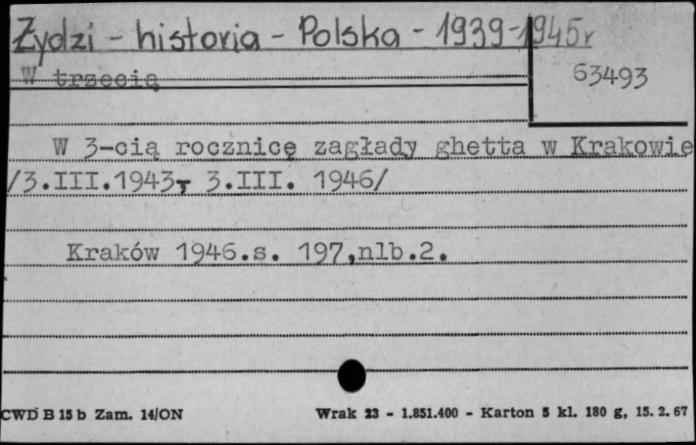 Żydzi - historia - Polska - 1939-1945r
W trzecią
63493
W 3-cią rocznicę zagłady ghetta w Krakowie
/3.III.1943- 3.III. 1946/
Kraków 1946.s. 197,nlb.2.
CWD B 15 b Zam. 14/ON
Wrak 23 - 1.851.400 - Karton 5 kl. 180 g, 15. 2. 67